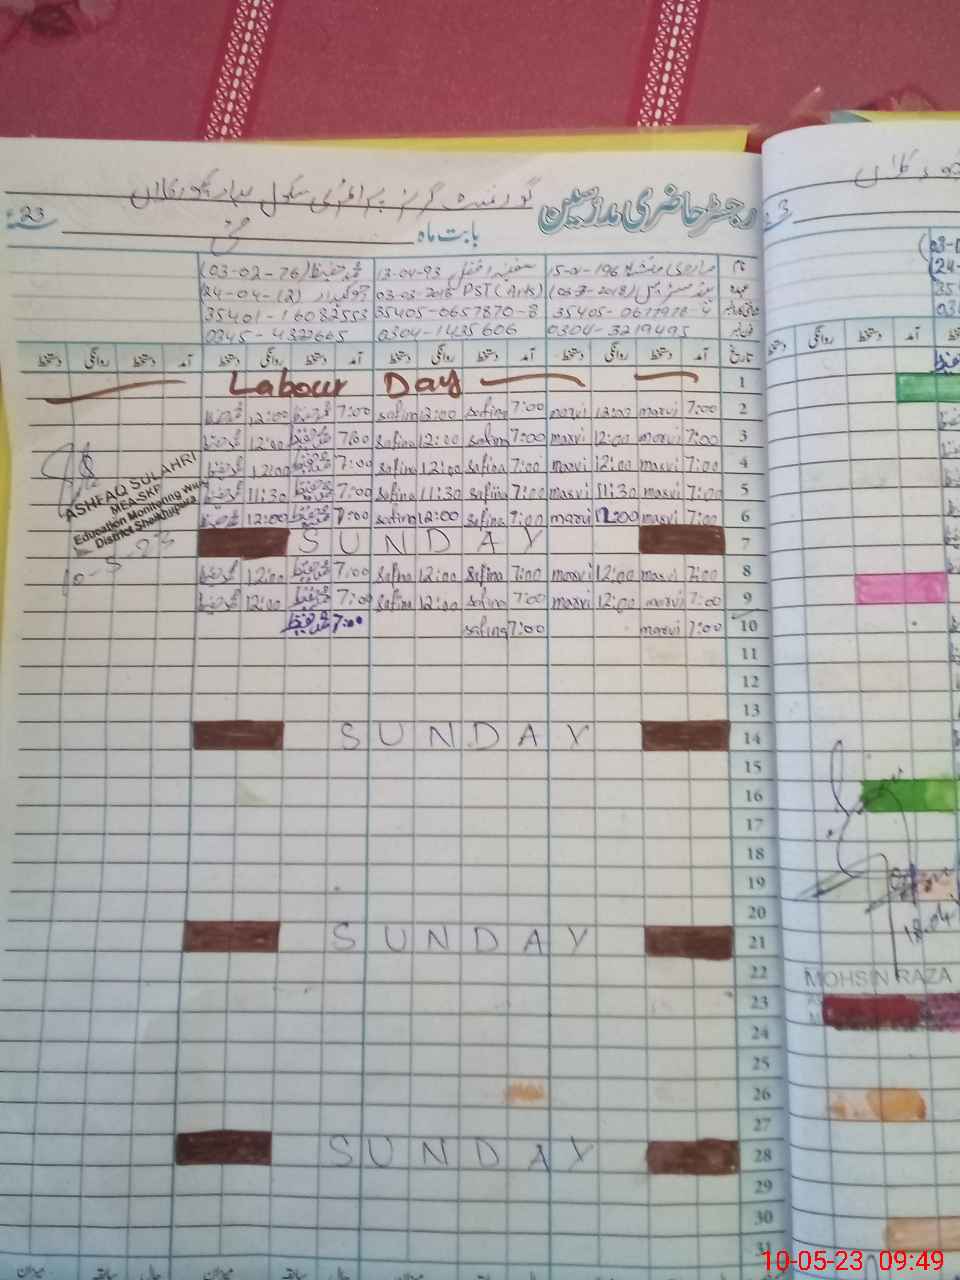 گورنمنٹ گرلز پرائمری سکول
رجسٹر حاضری مدرسین
بابت ماہ
مئی
23
سنہ
نام
15-01-196
صفیہ
13-04-93
محمد حفیظ (03-02-76)
عہدہ
03-03-2018 PST (Arts)
چوکیدار (24-04-12)
35405-0657870-8
35401-16082553
0304-3219495
0304-1435606
0345-4322665
تاریخ آمد دستخط روانگی دستخط آمد دستخط روانگی دستخط آمد دستخط روانگی دستخط آمد دستخط روانگی دستخط
1 Labour Day
2 7:00 marvi 12:00 marvi 7:00 safina 12:00 safina 7:00 محمد حفیظ 12:00 محمد حفیظ
3 7:00 marvi 12:00 marvi 7:00 safina 12:00 safina 7:00 محمد حفیظ 12:00 محمد حفیظ
4 7:00 marvi 12:00 marvi 7:00 safina 12:00 safina 7:00 محمد حفیظ 12:00 محمد حفیظ
5 7:00 marvi 11:30 marvi 7:00 safina 11:30 safina 7:00 محمد حفیظ 11:30 محمد حفیظ
6 7:00 marvi 12:00 marvi 7:00 safina 12:00 safina 7:00 محمد حفیظ 12:00 محمد حفیظ
7 SUNDAY
8 7:00 marvi 12:00 marvi 7:00 safina 12:00 safina 7:00 محمد حفیظ 12:00 محمد حفیظ
9 7:00 marvi 12:00 marvi 7:00 safina 12:00 safina 7:00 محمد حفیظ 12:00 محمد حفیظ
10 7:00 marvi 7:00 safina 7:00 محمد حفیظ
11
12
13
14 SUNDAY
15
16
17
18
19
20
21 SUNDAY
22
23
24
25
26
27
28 SUNDAY
29
30
31
ASHFAQ SULAHRI
MEA SKP
Education Monitoring Wing
District Sheikhupura
10-5-23
18-04
MOHSIN RAZA
10-05-23 09:49